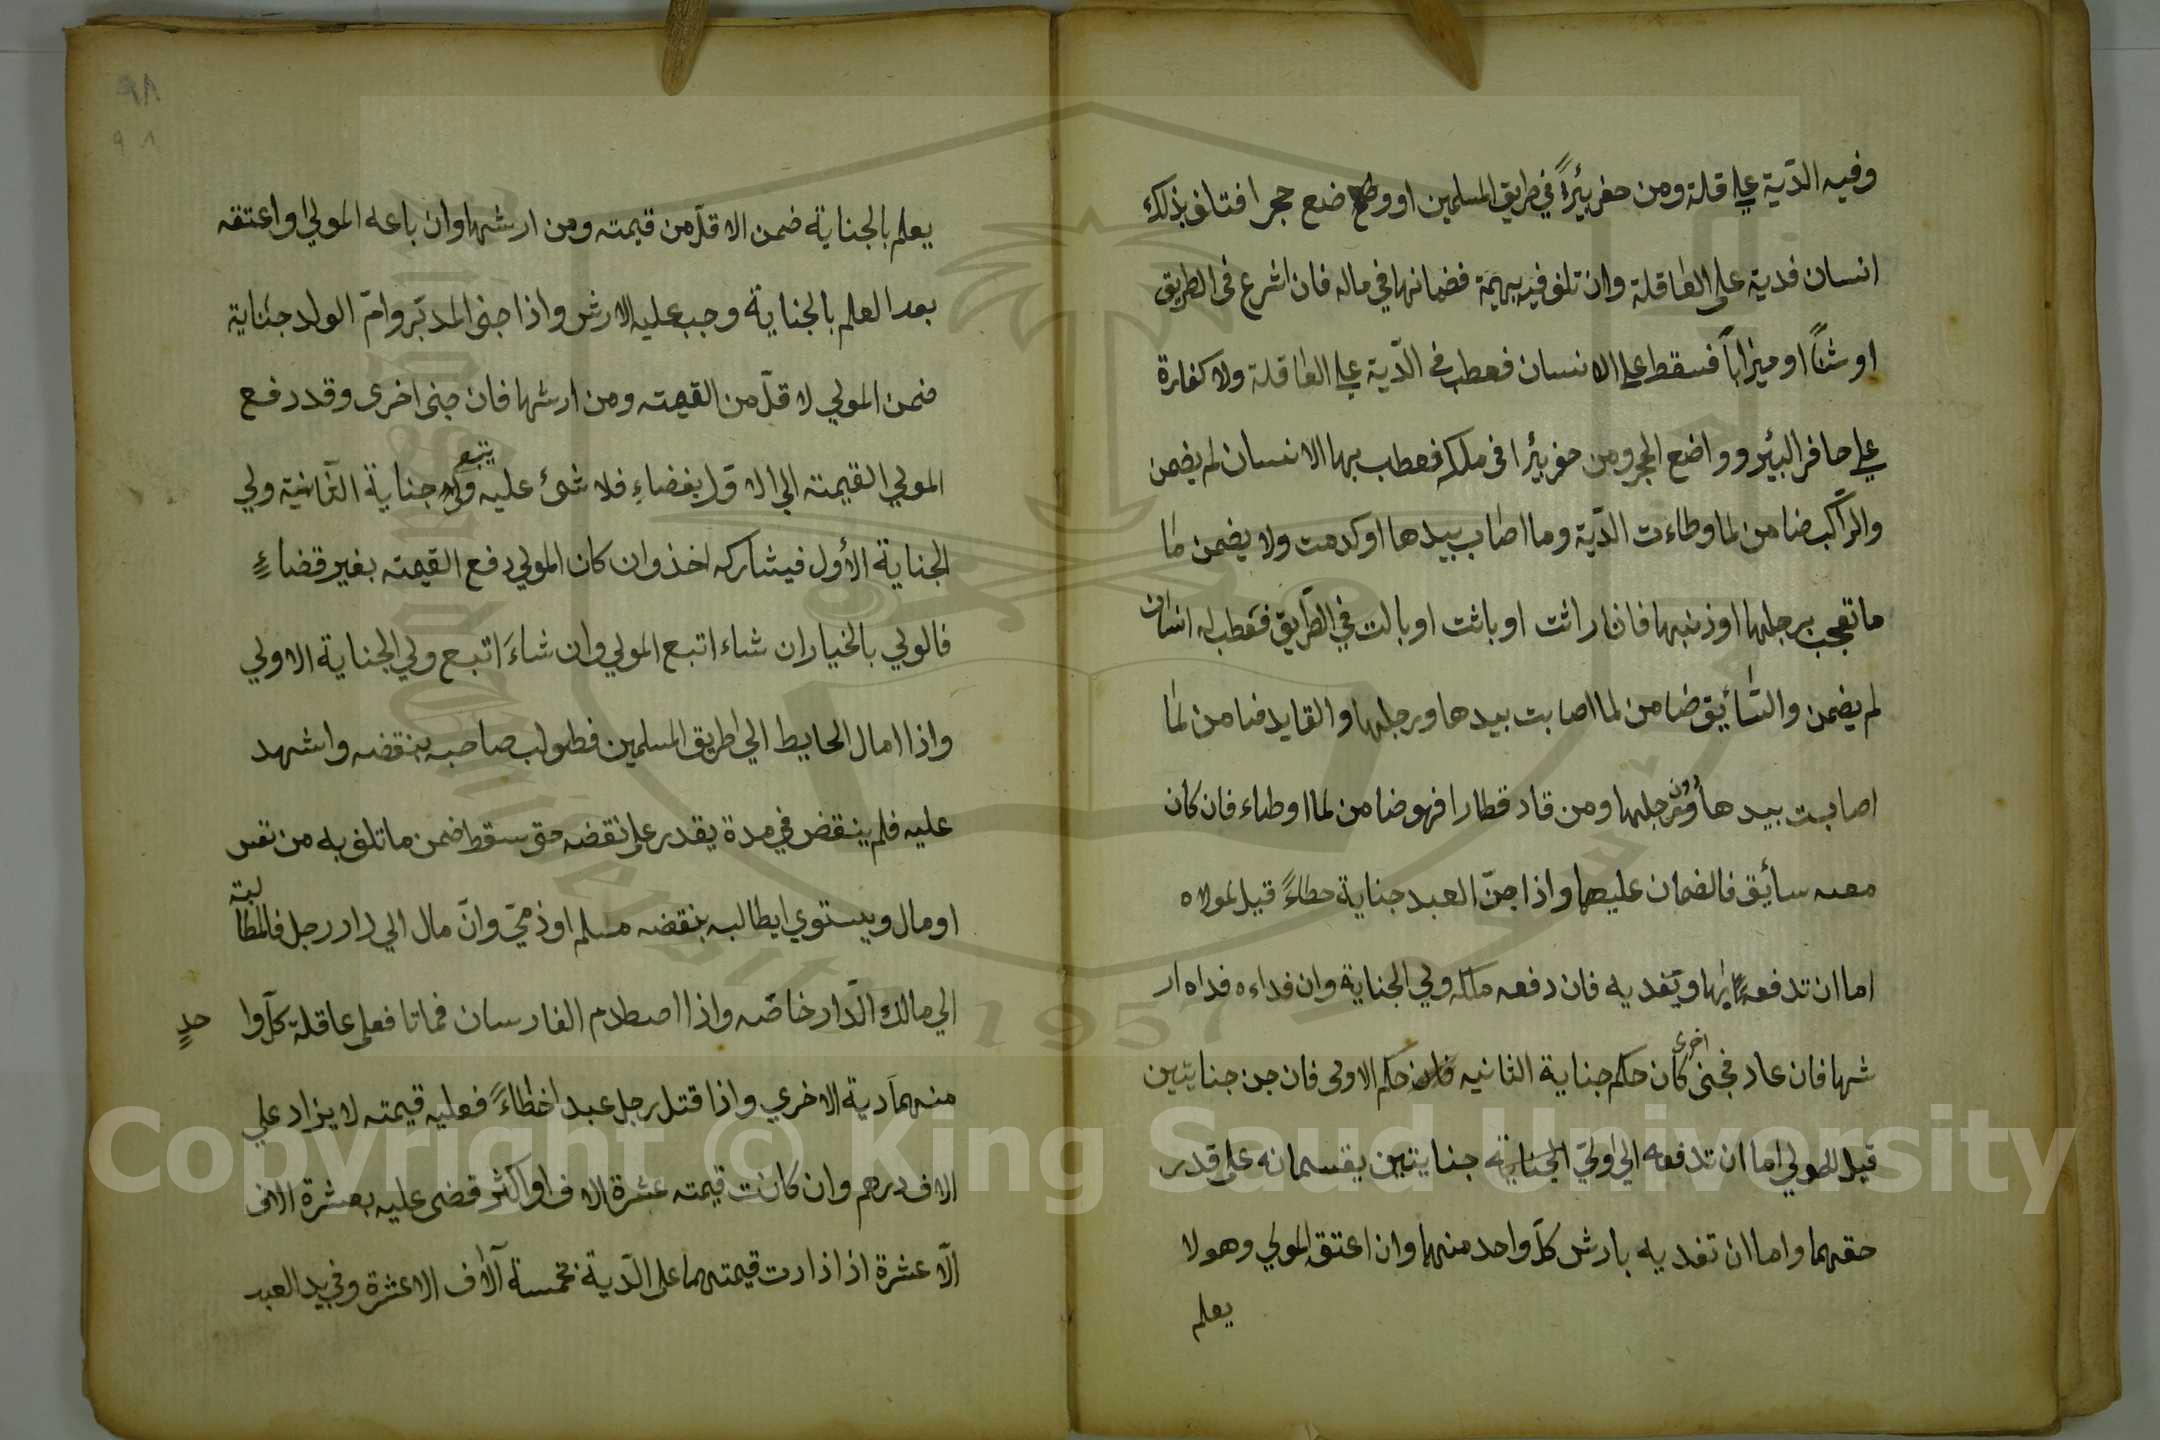 وفيه الدّية علي قلة ومن حفر بئيراً في طريق المسلمين او وضع حجرا فتلف بذلك
انسان فدية على العاقلة وان تلف فيه بهيمة فضمانها في ماله فان اشرع في الطريق
او شناً او ميزاباً فسقط علي الانسان فعطب في الدّية علي العاقلة ولا كفارة
علي حافر البئير وواضع الحجر ومن حفر بئرا في ملكه فعطب بها الانسان لم يضمن
والرّاكب ضامن لما وطاءت الدّية وما اصاب بيدها او كدمت ولا يضمن ما
ما تعجب برجلها او ذنبها فان راثت او باثت او بالت في الطّريق فعطب له انسان
لم يضمن والسّائيق ضامن لما اصابت بيدها ورجلها والقايد ضامن لما
اصابت بيدها دون رجلها ومن قاد قطارا فهو ضامن لما اوطاء فان كان
معه سائيق فالضمان عليهما واذا جنّ العبد جناية خطاءً قيل لمولاه
اما ان تدفعه بها وتفديه فان دفعه ملكه ولي الجناية وان فداءه فداه ار
شها فان عاد فجنى اخرى كان حكم جناية الثانيه حكم الاولى فان جن جنايتين
قيل للمولي اما ان تدفعه الي اوليّ الجناية جنايتين يقسمانه على قدر
حقهما واما ان تفديه بارش كلّ واحد منهما وان اعتق المولي وهو لا
يعلم
٩٨
٩٨
يعلم بالجناية ضمن الاقلّ من قيمته ومن ارشها وان باعه المولي او اعتقه
بعد العلم بالجناية وجب عليه الارش واذا جنى المدبّر وامّ الولد جناية
ضمن المولي لاقلّ من القيمته ومن ارشها فان جنى اخرى وقد دفع
المولي القيمته الي الاوّل بغضاءِ فلا شئ عليه ويتبع ولي جناية الثّانية ولي
الجناية الأول فيشاركه اخذ وان كان المولي دفع القيمته بغير قضاءٍ
فالولي بالخيار ان شاء اتبع المولي وان شاءَ اتبع ولي الجناية الاولي
واذا امال الحايط الي طريق المسلمين فطولب صاحبه بنقضه واشهد
عليه فلم ينقض في مدة يقدر على نقضه حتى سقط ضمن ما تلف به من نفس
او مال ويستوي ايطالبه بنقضه مسلم او ذمّي وانّ مال الي دار رجل فالمطالبة
الي مالك الدّار خاصّه واذا اصطدم الفارسان فماتا فعلى عاقلة كلّ واحدٍ
منهما دية الاخري واذا قتل رجل عبدا خطاءً فعليه قيمته لا يزاد علي
الاف درهم وان كانت قيمته عشرة الاف او اكثر قضى عليه بعشرة الاف
الّا عشرة اذا زادت قيمتهما على الدّية خمسة آلاف الا عشرة وفي يد العبد
Copyright © King Saud University
1957